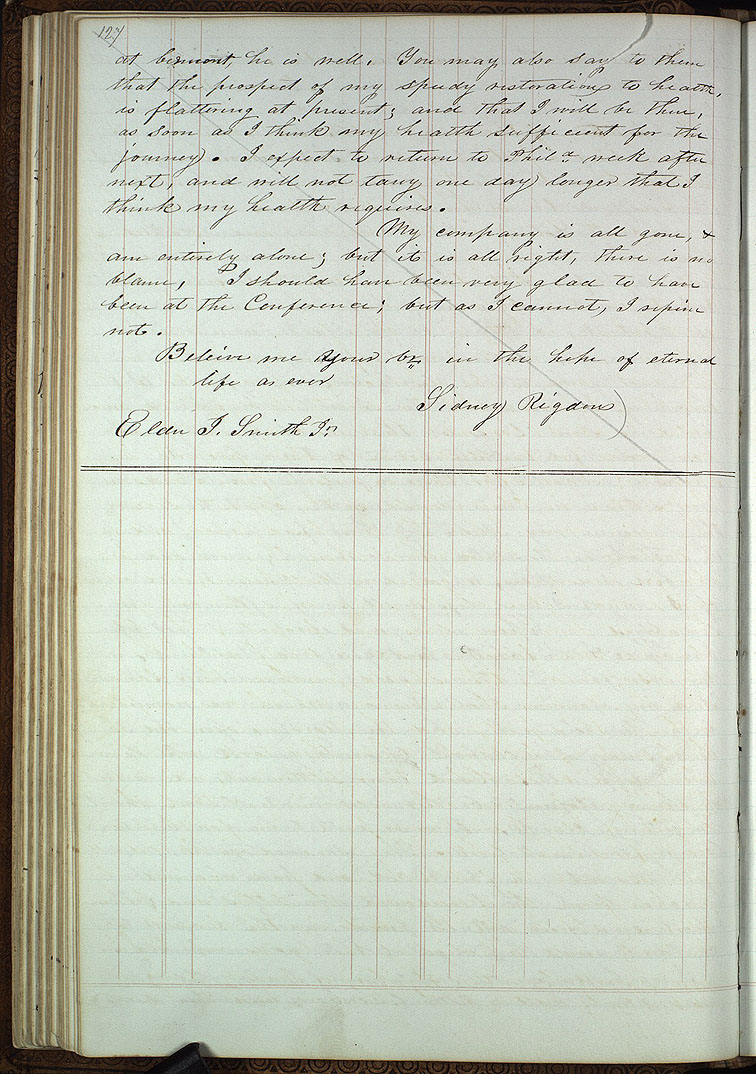 127
at bermont he is well. You may also say to them
that the prospect of my speedy restoration to health,
is flattering at present; and that I will be there,
as soon as I think my health sufficient for the
journey. I expect to return to Phila. week after
next, and will not tarry one day longer that I
think my health requires.
My company is all gone, &
am entirely alone; but it is all right, there is no
blame, I should have been very glad to have
been at the Conference; but as I cannot, I repine
not.
Beleive me your br. in the hope of eternal
life as ever
Sidney Rigdon
Elder J. Smith Jr.